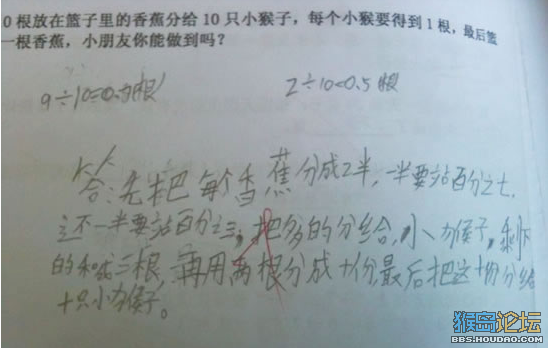 0根放在篮子里的香蕉分给10只小猴子，每个小猴要得到1根，最后篮
一根香蕉，小朋友你能做到吗？
9÷10=0.9(根) 2÷10=0.5根
答：先把每个香蕉分成2半，一半要站百分之七，
这不一半要站百分之三，把多的分给，小猴子，剩下
的和成三根，再用两根分成十份，最后把这十份分给
十只小猴子。
猴岛论坛
BBS.HOUDAO.COM